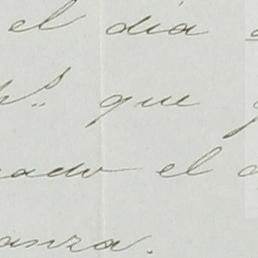 el día
que
ado el
anza.